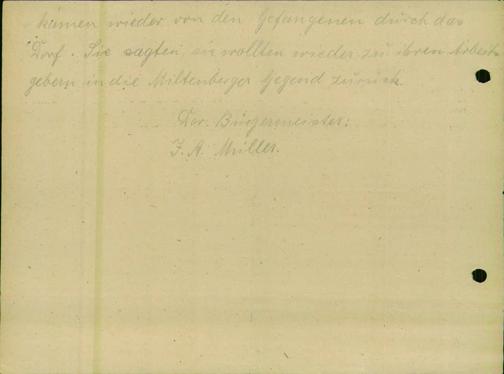 kamen wieder von den Gefangenen durch das
Dorf. Sie sagten sie wollten wieder zu ihren Arbeit-
gebern in die Miltenberger Gegend zurück.
Der Bürgermeister:
J. A. Müller.